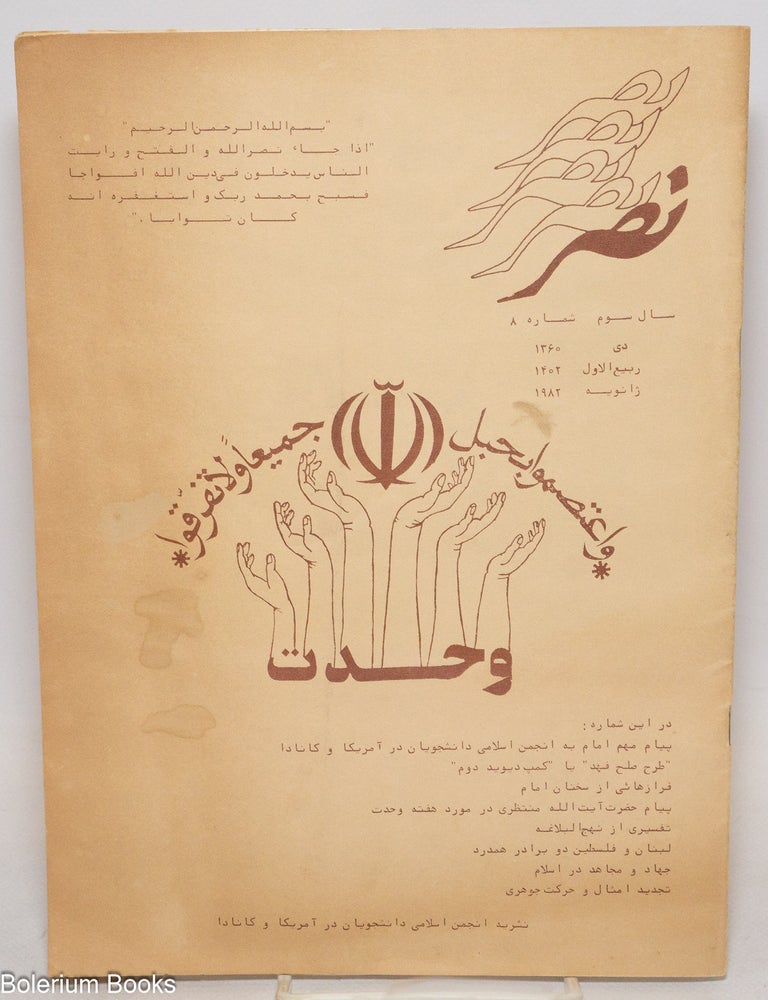 "بسم الله الرحمن الرحیم"
"اذا جاء نصر الله و الفتح و رایت
الناس یدخلون فی دین الله افواجا
فسبح بحمد ربک و استغفره انه
کان توابا ."
نصر
سال سوم شماره ۸
دی ۱۳۶۰
ربیع الاول ۱۴۰۲
ژانویه ۱۹۸۲
واعتصموا بحبل الله جمیعاً ولا تفرّقوا
وحدت
در این شماره :
پیام مهم امام به انجمن اسلامی دانشجویان در آمریکا و کانادا
"طرح صلح فهد" یا "کمپ دیوید دوم"
فرازهائی از سخنان امام
پیام حضرت آیت الله منتظری در مورد هفته وحدت
تفسیری از نهج البلاغه
لبنان و فلسطین دو برادر همدرد
جهاد و مجاهد در اسلام
تجدید امثال و حرکت جوهری
نشریه انجمن اسلامی دانشجویان در آمریکا و کانادا
Bolerium Books